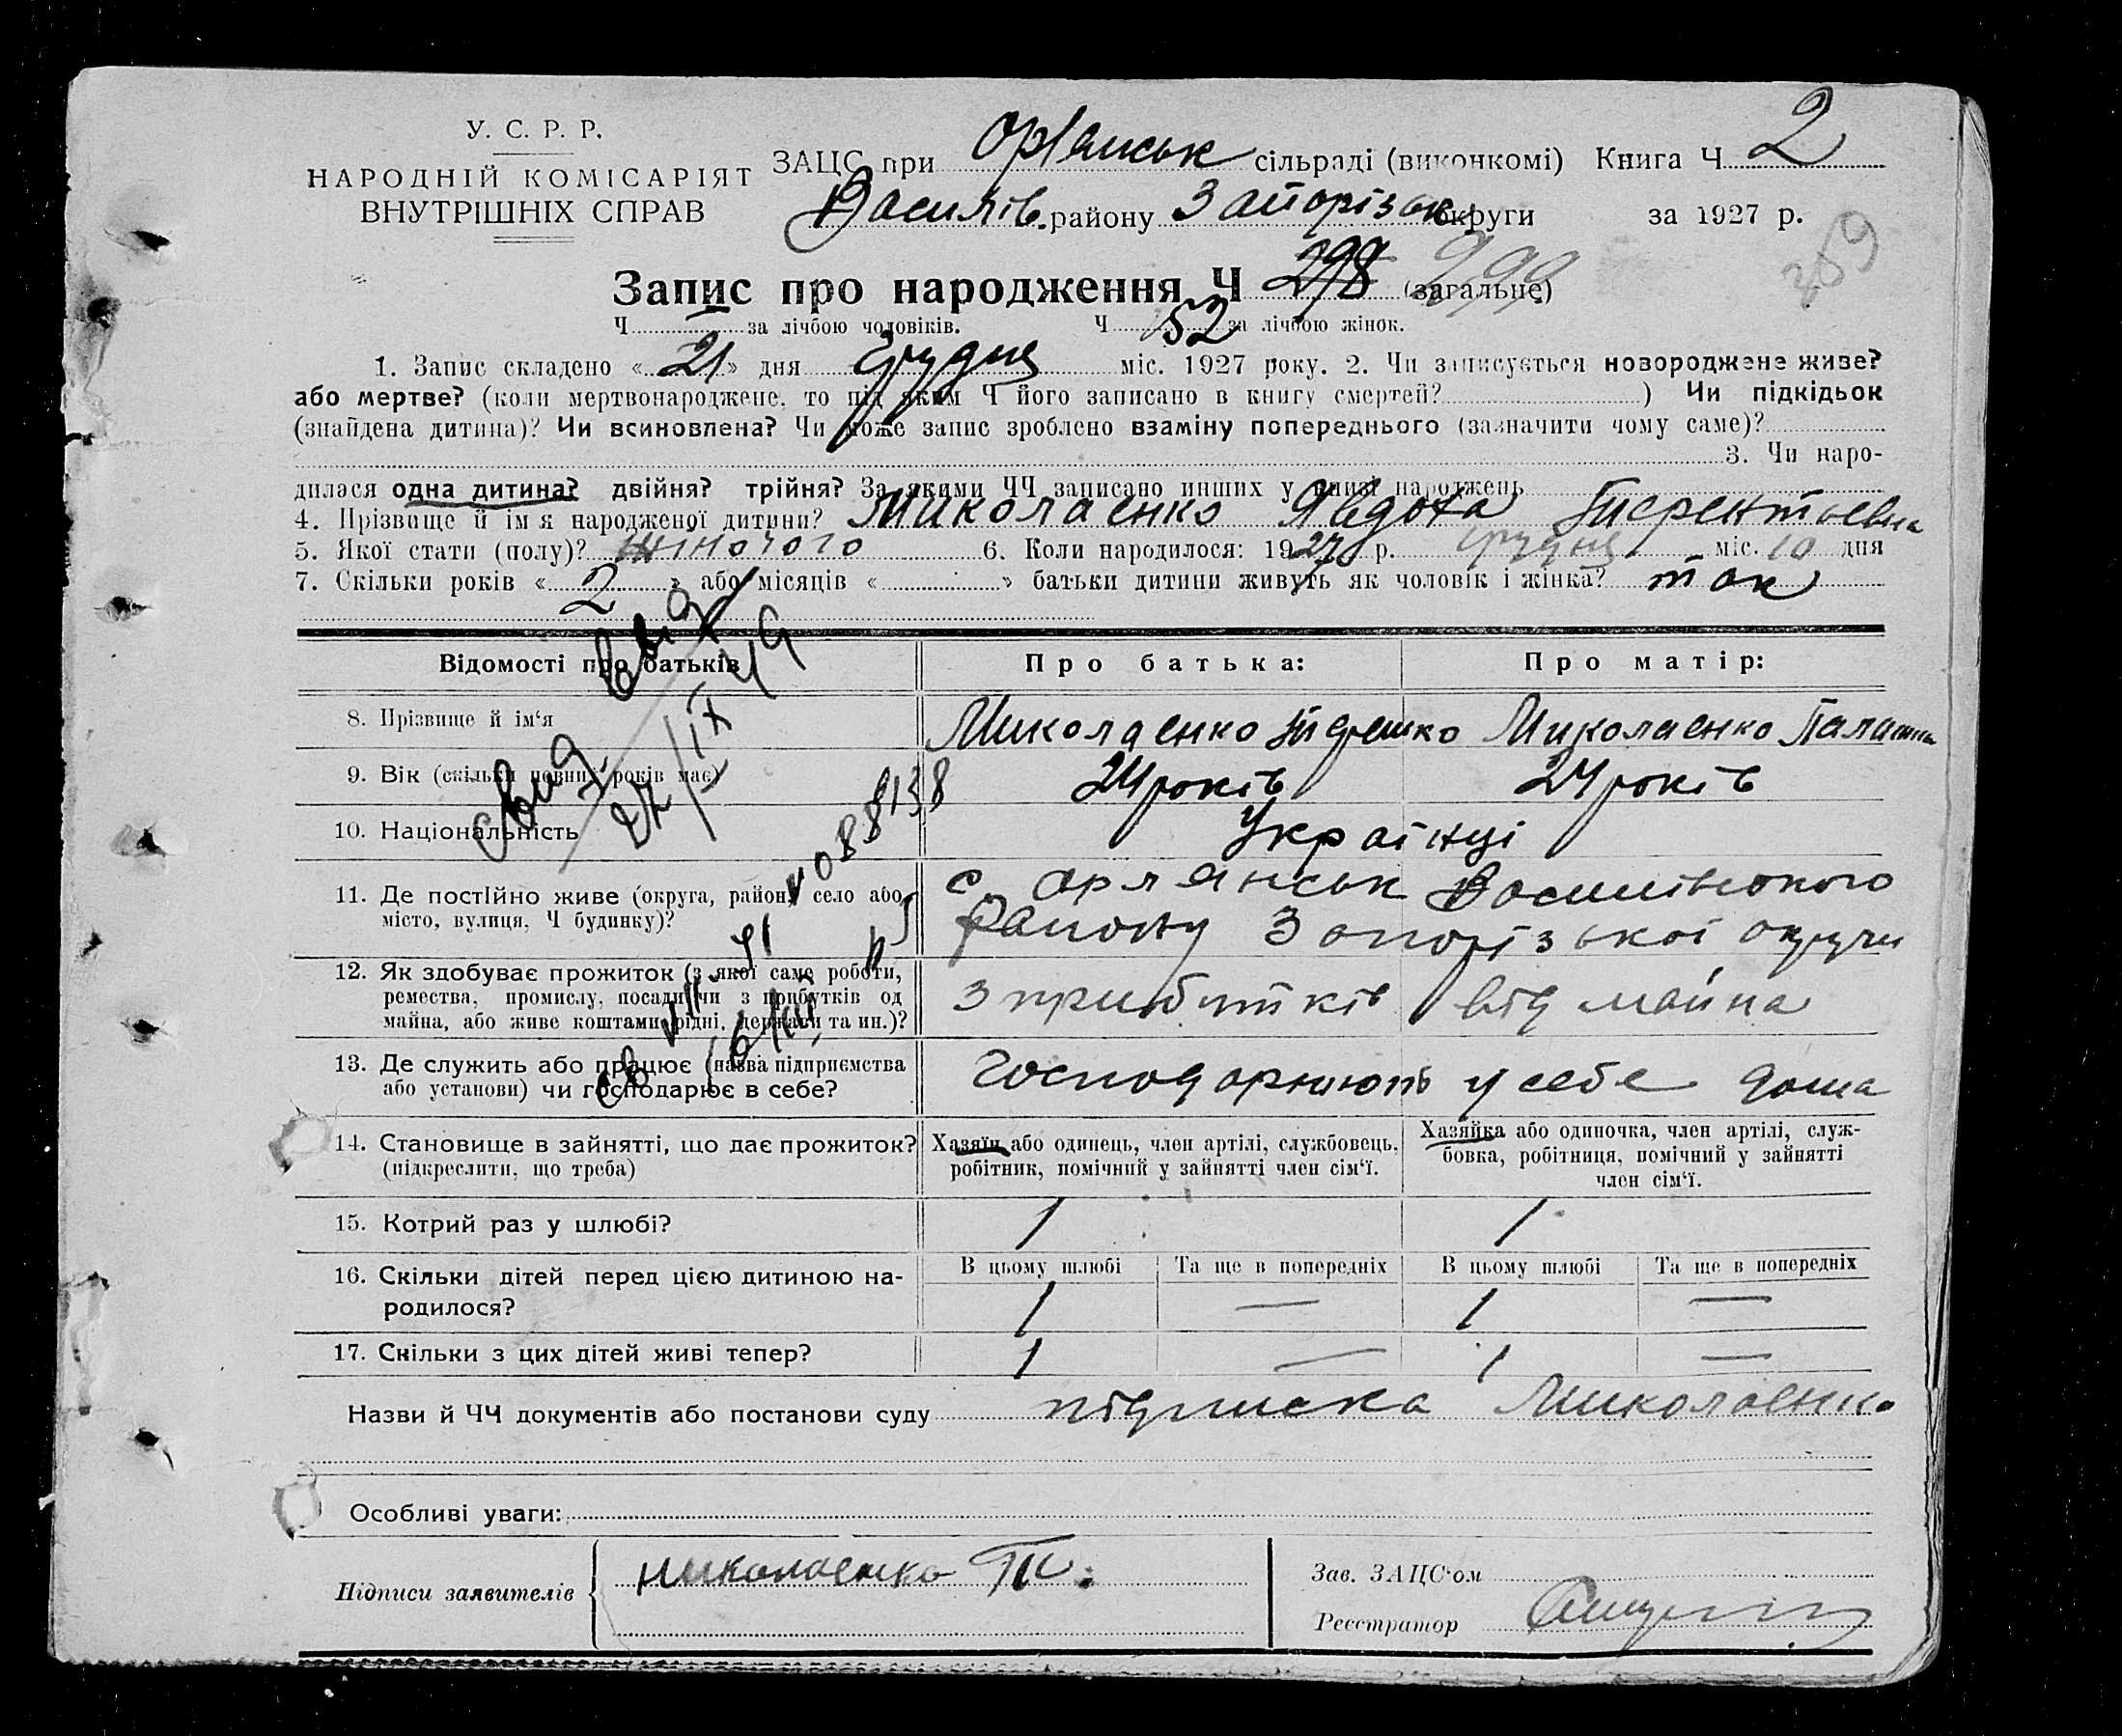 У. С. Р. Р.
НАРОДНІЙ КОМІСАРІЯТ
ВНУТРІШНІХ СПРАВ
ЗАЦС при Орлянськ сільраді (виконкомі) Книга Ч 2
Василів. району Запорізьк округи за 1927 р.
259
Запис про народження Ч 298 299 (загальне)
Ч за лічбою чоловіків. Ч 152 за лічбою жінок.
1. Запис складено « 21 » дня Грудня міс. 1927 року. 2. Чи записується новороджене живе?
або мертве? (коли мертвонароджене, то під яким Ч його записано в книгу смертей? ) Чи підкідьок
(знайдена дитина)? Чи всиновлена? Чи може запис зроблено взаміну попереднього (зазначити чому саме)?
3. Чи наро-
дилася одна дитина? двійня? трійня? За якими ЧЧ записано инших у книзі народжень
4. Прізвище й ім'я народженої дитини? Миколаенко Явдоха Тиерентьевна
5. Якої стати (полу)? жіночого 6. Коли народилося: 1927 р. грудня міс. 10 дня
7. Скільки років « 2 » або місяців « » батьки дитини живуть як чоловік і жінка? так
Відомості про батьків Про батька: Про матір:
8. Прізвище й ім'я Миколаенко Миколаенко
9. Вік (скільки повних років має) 24 років 24 років
10. Національність Українці
11. Де постійно живе (округа, район, село або
місто, вулиця, Ч будинку)?
с. Орлянськ Василівського
Району Запорізької округи
12. Як здобуває прожиток (з якої саме роботи,
ремества, промислу, посади чи з прибутків од
майна, або живе коштами рідні, держави та ин.)?
з прибутків від майна
13. Де служить або працює (назва підприємства
або установи) чи господарює в себе?
Господарюють у себе дома
14. Становище в зайнятті, що дає прожиток?
(підкреслити, що треба)
Хазяїн або одинець, член артілі, службовець,
робітник, помічний у зайнятті член сім'ї.
Хазяйка або одиночка, член артілі, служ-
бовка, робітниця, помічний у зайнятті
член сім'ї.
15. Котрий раз у шлюбі? 1 1
16. Скільки дітей перед цією дитиною на-
родилося?
В цьому шлюбі Та ще в попередніх В цьому шлюбі Та ще в попередніх
1 — 1 —
17. Скільки з цих дітей живі тепер? 1 — 1 —
Назви й ЧЧ документів або постанови суду підписка Миколаенко
Особливі уваги:
Підписи заявителів Николаенко Т.
Зав. ЗАЦС'ом
Реєстратор